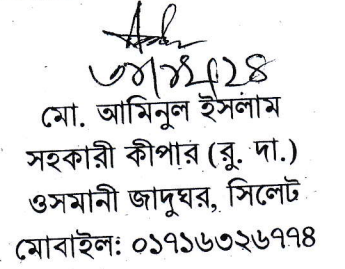 মো. আমিনুল ইসলাম
সহকারী কীপার (রু. দা.)
ওসমানী জাদুঘর, সিলেট
মোবাইল: ০১৭১৬৩২৬৭৭৪